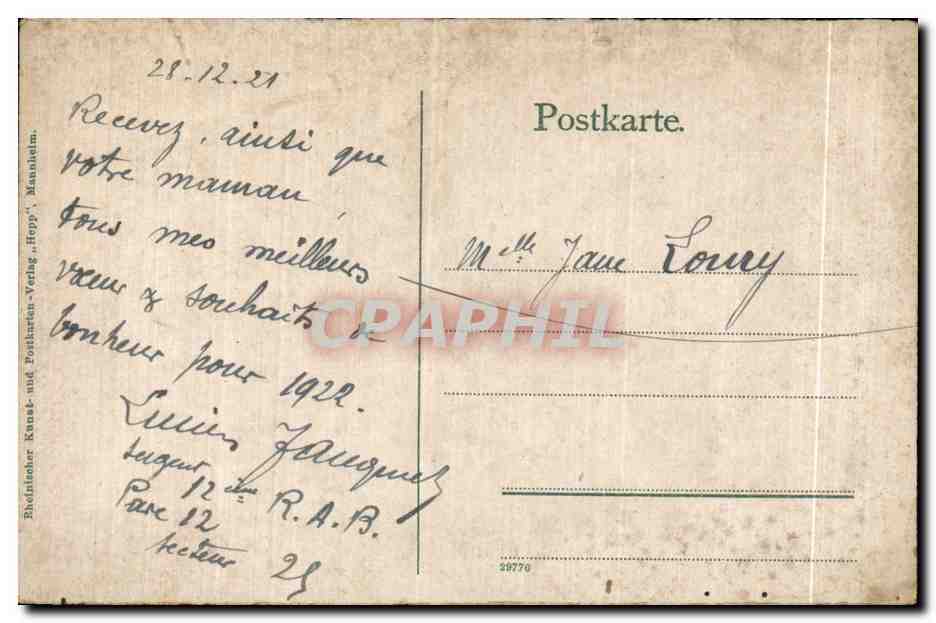 28.12.21
Recevez, ainsi que
votre maman,
tous mes meilleurs
vœux & souhaits de
bonheur pour 1922.
Lucien
sergent
12eme R.A.B.
Parc 12
secteur 25
Postkarte.
Melle Jane Loury
29770
Rheinischer Kunst- und Postkarten-Verlag „Hepp", Mannheim.
CPARHIL